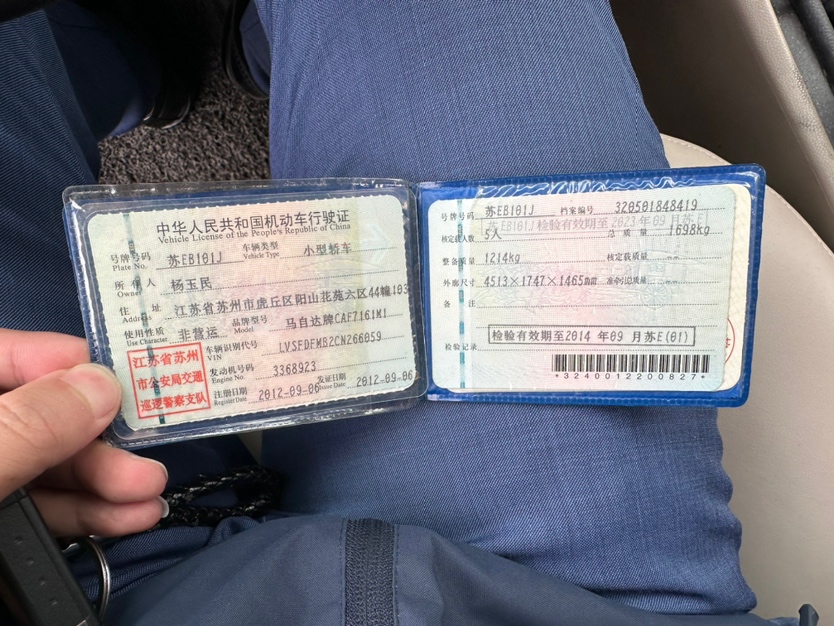 中华人民共和国机动车行驶证
Vehicle License of the People's Republic of China
号牌号码 苏EB101J 车辆类型 小型轿车
Plate No. Vehicle Type
所有人 杨玉民
Owner
住址 江苏省苏州市虎丘区阳山花苑六区44幢103
Address
使用性质 非营运 品牌型号 马自达牌CAF7161M1
Use Character Model
江苏省苏州
市公安局交通
巡逻警察支队
车辆识别代号 LVSFDFMB2CN266059
VIN
发动机号码 3368923
Engine No.
注册日期 2012-09-06 发证日期 2012-09-06
Register Date Issue Date
号牌号码 苏EB101J 档案编号 320501848419
苏EB101J 检验有效期至 2023年09月苏E
核定载人数 5人 总质量 1698kg
整备质量 1214kg 核定载质量 --
外廓尺寸 4513×1747×1465mm 准牵引总质量 --
备注
检验有效期至2014年09月苏E(01)
检验记录
*3240012200827*